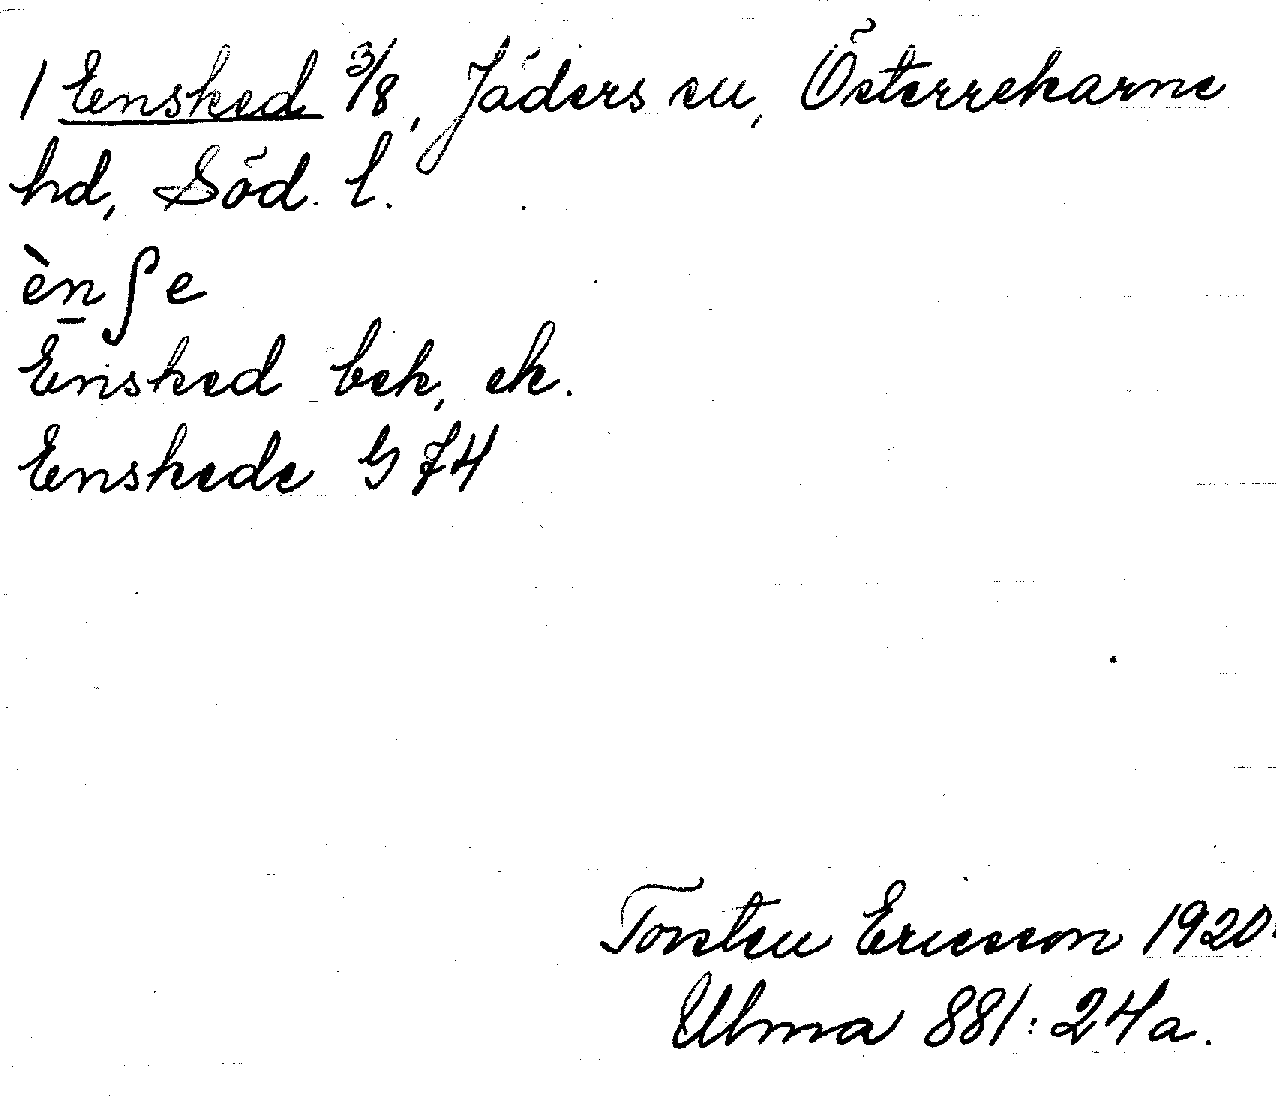 1 Ensked 3/8, Jäders sn, Österrekarne
hd, Söd. l.
èn̲ʃe
Ensked bek, ek.
Enskede G 74
Torsten Ericsson 1920.
Ulma 881:24a.